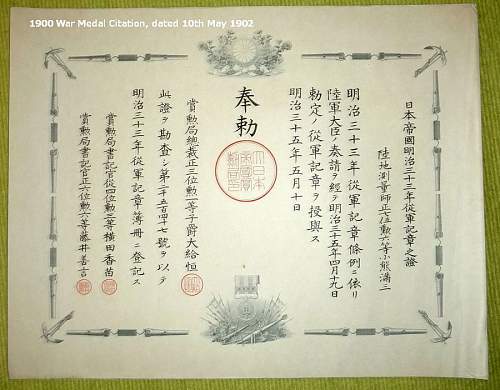 1900 War Medal Citation, dated 10th May 1902
日本帝國明治三十三年從軍記章之證
陸地測量師正七位勲六等小熊満三
明治三十三年從軍記章條例ニ依リ
陸軍大臣ノ奏請ヲ經テ明治三十五年四月十九日
勅定ノ從軍記章ヲ授與ス
明治三十五年五月十日
奉勅
賞勲局總裁正三位勲一等子爵大給恒
此證ヲ勘査シ第二千五百四十七號ヲ以テ
明治三十三年從軍記章簿冊ニ登記ス
賞勲局書記官從四位勲三等横田香苗
賞勲局書記官正六位勲六等藤井善言